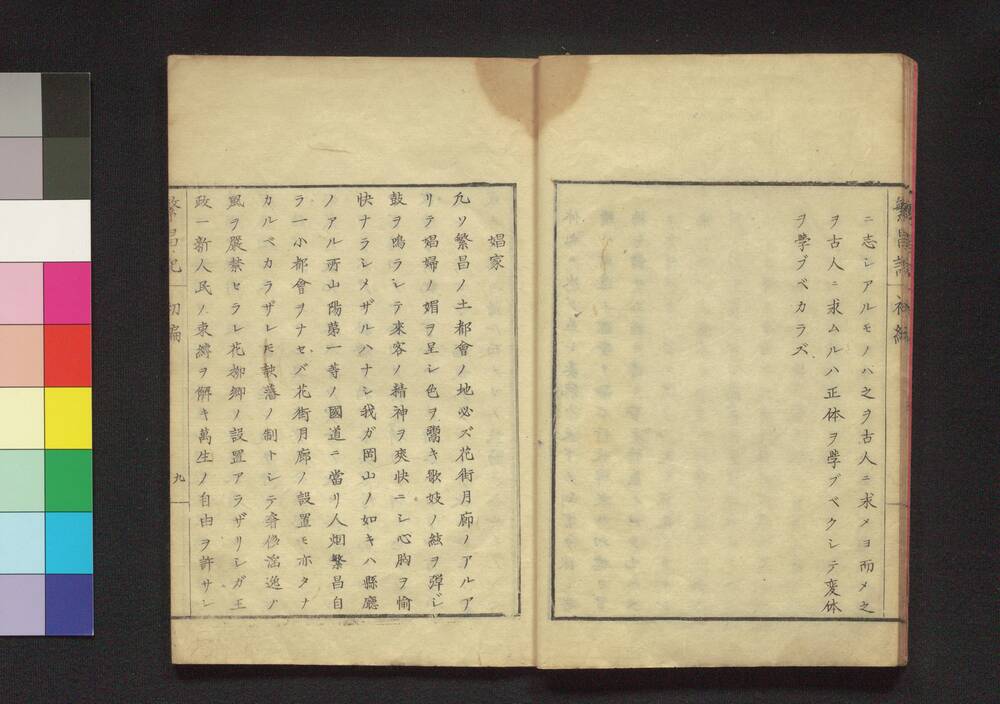 ニ志シアルモノハ之ヲ古人ニ求メヨ而メ之
ヲ古人ニ求ムルハ正体ヲ學ブベクシテ変体
ヲ學ブベカラズ
娼家
凢ソ繁昌ノ土都會ノ地必ズ花街月廓ノアルア
リテ娼婦ノ媚ヲ呈シ色ヲ鬻キ歌妓ノ絃ヲ彈ジ
鼓ヲ鳴ラシテ来客ノ精神ヲ爽快ニシ心胸ヲ愉
快ナラシメザルハナシ我ガ岡山ノ如キハ縣廳
ノアル所山陽第一等ノ國道ニ當リ人烟繁昌自
ラ一小都會ヲナセバ花街月廓ノ設置モ亦タナ
カルベカラザレ𪜈旧藩ノ制トシテ奢侈淫逸ノ
風ヲ嚴禁セラレ花柳郷ノ設置アラザリシガ王
政一新人民ノ束縛ヲ解キ萬生ノ自由ヲ許サレ
繁昌記 初編 九